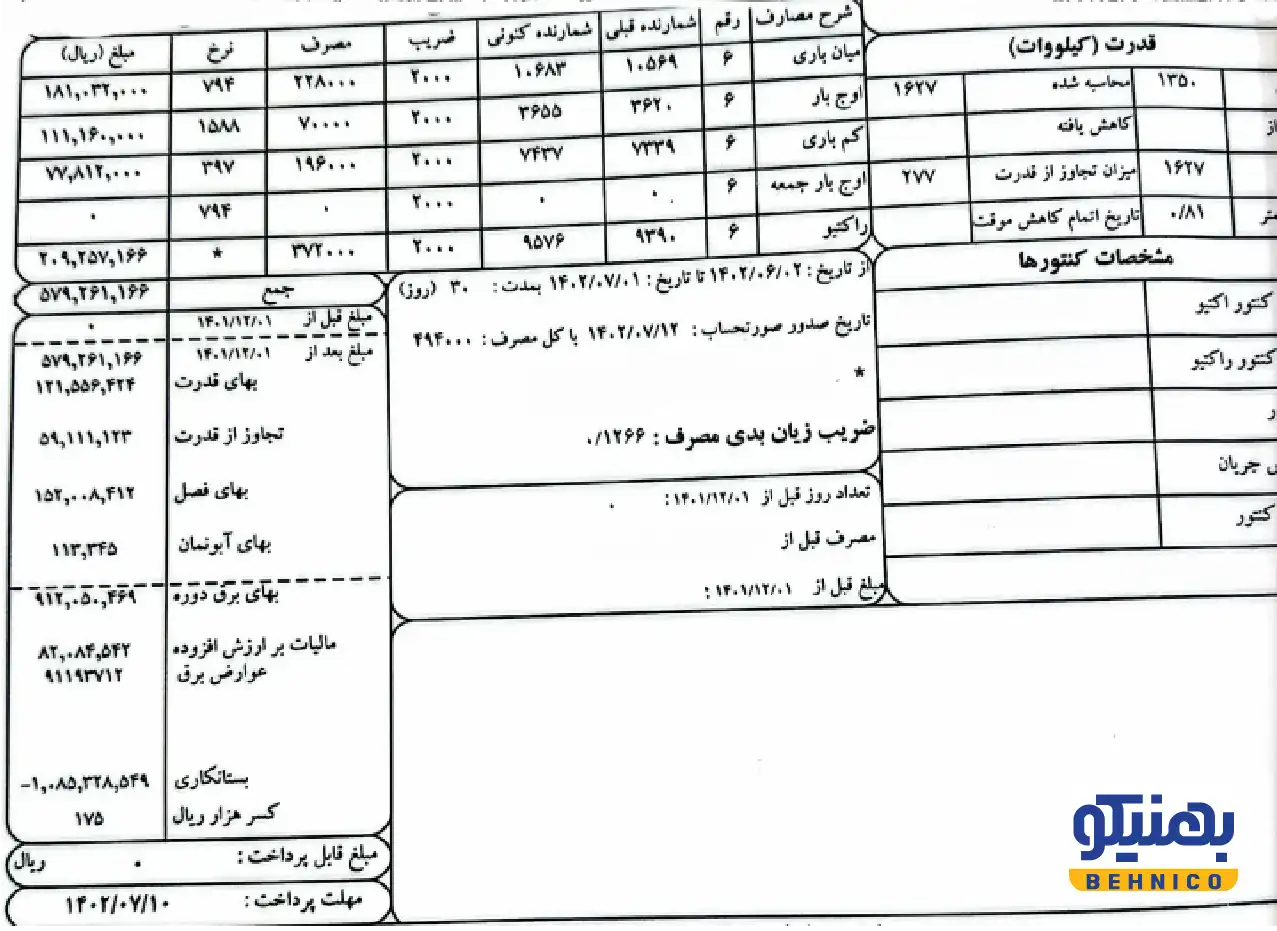 شرح مصارف رقم شمارنده قبلی شمارنده کنونی ضریب مصرف نرخ مبلغ (ریال)
میان باری ۶ ۱۰۵۶۹ ۱۰۶۸۳ ۲۰۰۰ ۲۲۸۰۰۰ ۷۹۴ ۱۸۱,۰۳۲,۰۰۰
اوج بار ۶ ۳۶۲۰ ۳۶۵۵ ۲۰۰۰ ۷۰۰۰۰ ۱۵۸۸ ۱۱۱,۱۶۰,۰۰۰
کم باری ۶ ۷۳۳۹ ۷۴۳۷ ۲۰۰۰ ۱۹۶۰۰۰ ۳۹۷ ۷۷,۸۱۲,۰۰۰
اوج بار جمعه ۶ ۰ ۰ ۲۰۰۰ ۰ ۷۹۴ ۰
راکتیو ۶ ۹۳۹۰ ۹۵۷۶ ۲۰۰۰ ۳۷۲۰۰۰ * ۲۰۹,۲۵۷,۱۶۶
قدرت (کیلووات)
۱۳۵۰ محاسبه شده ۱۶۲۷
کاهش یافته
۱۶۲۷ میزان تجاوز از قدرت ۲۷۷
۰/۸۱ تاریخ اتمام کاهش موقت
مشخصات کنتورها
کنتور اکتیو
کنتور راکتیو
جریان
کنتور
از تاریخ : ۱۴۰۲/۰۶/۰۲ تا تاریخ : ۱۴۰۲/۰۷/۰۱ بمدت : ۳۰ (روز)
تاریخ صدور صورتحساب : ۱۴۰۲/۰۷/۱۲ با کل مصرف : ۴۹۴۰۰۰
*
ضریب زیان بدی مصرف : ۰/۱۲۶۶
تعداد روز قبل از ۱۴۰۱/۱۲/۰۱ : ۰
مصرف قبل از
مبلغ قبل از ۱۴۰۱/۱۲/۰۱ :
جمع ۵۷۹,۲۶۱,۱۶۶
مبلغ قبل از ۱۴۰۱/۱۲/۰۱ ۰
مبلغ بعد از ۱۴۰۱/۱۲/۰۱ ۵۷۹,۲۶۱,۱۶۶
بهای قدرت ۱۲۱,۵۵۶,۴۲۴
تجاوز از قدرت ۵۹,۱۱۱,۱۲۳
بهای فصل ۱۵۲,۰۰۸,۴۱۲
بهای آبونمان ۱۱۳,۳۴۵
بهای برق دوره ۹۱۲,۰۵۰,۴۶۹
مالیات بر ارزش افزوده ۸۲,۰۸۴,۵۴۲
عوارض برق ۹۱۱۹۳۷۱۲
بستانکاری ۱,۰۸۵,۳۲۸,۵۴۹-
کسر هزار ریال ۱۷۵
مبلغ قابل پرداخت : ۰ ریال
مهلت پرداخت : ۱۴۰۲/۰۷/۱۰
بهنیکو
BEHNICO